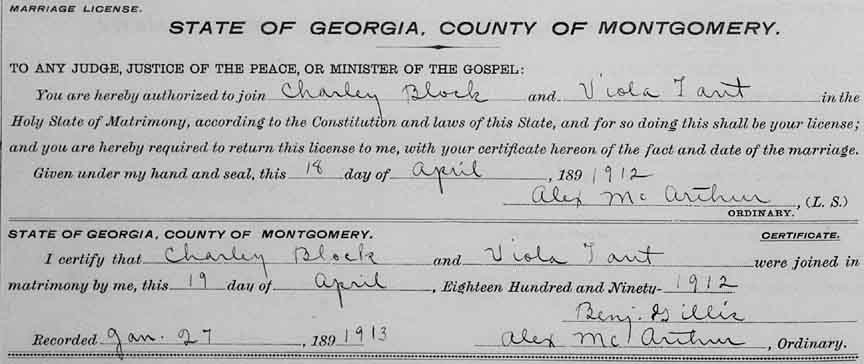 MARRIAGE LICENSE.
STATE OF GEORGIA, COUNTY OF MONTGOMERY.
TO ANY JUDGE, JUSTICE OF THE PEACE, OR MINISTER OF THE GOSPEL:
You are hereby authorized to join Charley Block and Viola Tant in the
Holy State of Matrimony, according to the Constitution and laws of this State, and for so doing this shall be your license;
and you are hereby required to return this license to me, with your certificate hereon of the fact and date of the marriage.
Given under my hand and seal, this 18 day of April, 189 1912
Alex McArthur, (L. S.)
ORDINARY.
STATE OF GEORGIA, COUNTY OF MONTGOMERY. CERTIFICATE.
I certify that Charley Block and Viola Tant were joined in
matrimony by me, this 19 day of April, Eighteen Hundred and Ninety- 1912
Benj. Gillis
Recorded Jan. 27, 189 1913 Alex McArthur, Ordinary.